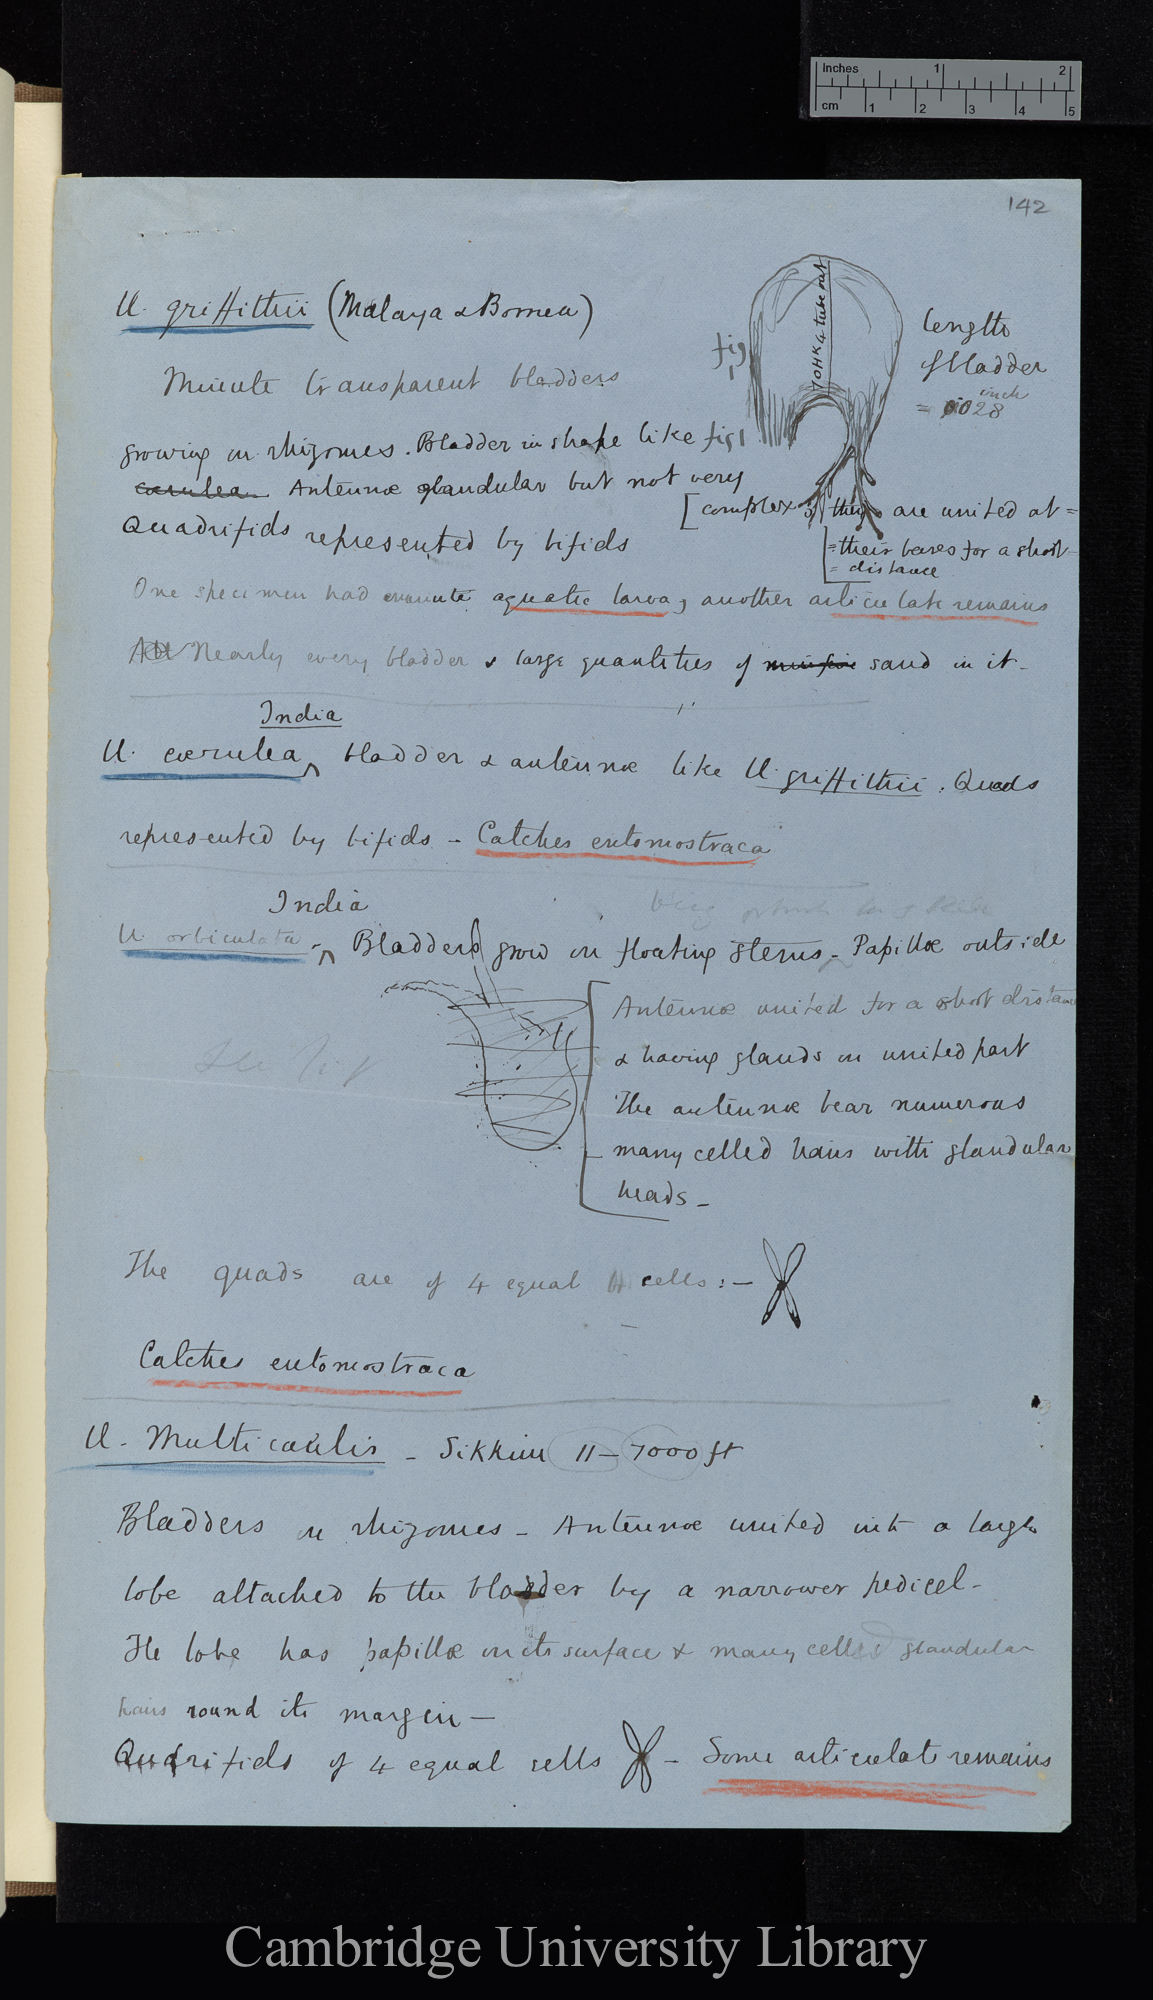 Inches 1 2
cm 1 2 3 4 5
142
U. griffithii (Malaya & Borneo)
fig
1
70HK4 tube out
length
of bladder
inch
= .028
Minute transparent bladders
growing on rhizomes. Bladder in shape like fig 1
cærulea Antennæ glandular but not very
[complex; they are united at =
= their bases for a short =
= distance
Quadrifids represented by bifids
One specimen had minute aquatic larva, another articulate remains
Nearly every bladder & large quantities of sand in it -
India
U. cærulea ^ bladder & antennæ like U. griffithii. Quads
represented by bifids - Catches entomostraca
India
U. orbiculata - ^ Bladders grow on floating stems - Papillæ outside
Antennæ united for a short distance
& having glands on united part
The antennæ bear numerous
many celled hairs with glandular
heads -
See fig
The quads are of 4 equal cells: -
Catches entomostraca
U. Multicaulis - Sikkim 11 - 7000 ft
Bladders on rhizomes - Antennæ united into a large
lobe attached to the bladder by a narrower pedicel -
The lobe has papillæ on its surface & many celled glandular
hairs round its margin -
Quadrifids of 4 equal cells - Some articulate remains
Cambridge University Library